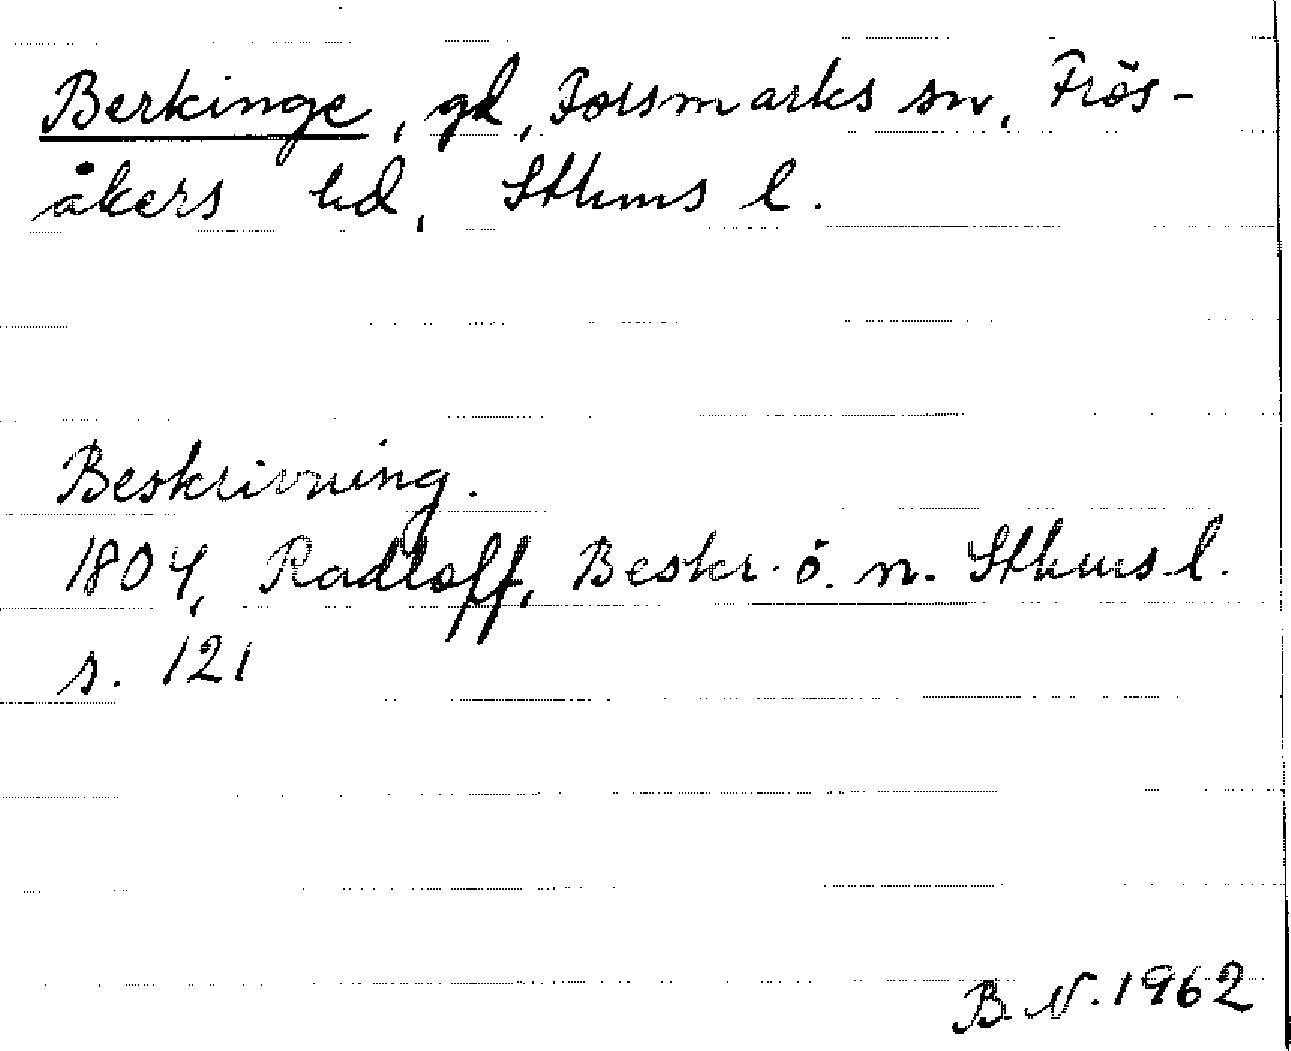 Berkinge, gd, Forsmarks sn, Frös-
åkers hd, Sthms l.
Beskrivning.
1804, Radloff, Beskr. ö. n. Sthms l.
s. 121
B. N. 1962